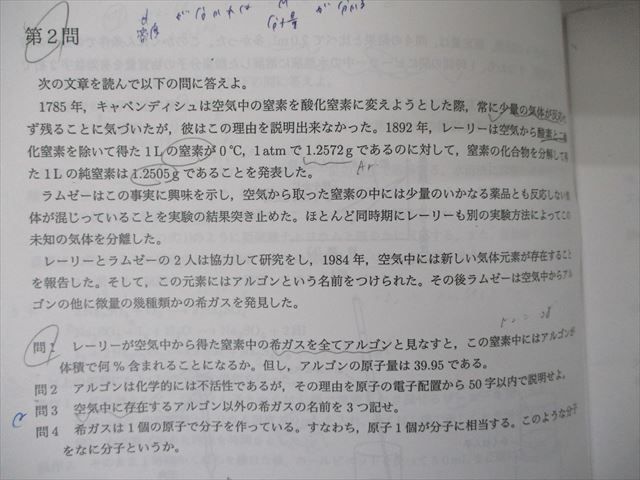 第2問
次の文章を読んで以下の問に答えよ。
1785年，キャベンディシュは空気中の窒素を酸化窒素に変えようとした際，常に少量の気体が反応
ず残ることに気づいたが，彼はこの理由を説明出来なかった。1892年，レーリーは空気から酸素と二酸
化窒素を除いて得た1Lの窒素が0℃，1atmで1.2572gであるのに対して，窒素の化合物を分解して得
た1Lの純窒素は1.2505gであることを発表した。
Ar
ラムゼーはこの事実に興味を示し，空気から取った窒素の中には少量のいかなる薬品とも反応しない気
体が混じっていることを実験の結果突き止めた。ほとんど同時期にレーリーも別の実験方法によってこの
未知の気体を分離した。
レーリーとラムゼーの2人は協力して研究をし，1984年，空気中には新しい気体元素が存在すること
を報告した。そして，この元素にはアルゴンという名前をつけられた。その後ラムゼーは空気中からアル
ゴンの他に微量の幾種類かの希ガスを発見した。
問1 レーリーが空気中から得た窒素中の希ガスを全てアルゴンと見なすと，この窒素中にはアルゴンが
体積で何%含まれることになるか。但し，アルゴンの原子量は39.95である。
問2 アルゴンは化学的には不活性であるが，その理由を原子の電子配置から50字以内で説明せよ。
問3 空気中に存在するアルゴン以外の希ガスの名前を3つ記せ。
問4 希ガスは1個の原子で分子を作っている。すなわち，原子1個が分子に相当する。このような分子
をなに分子というか。